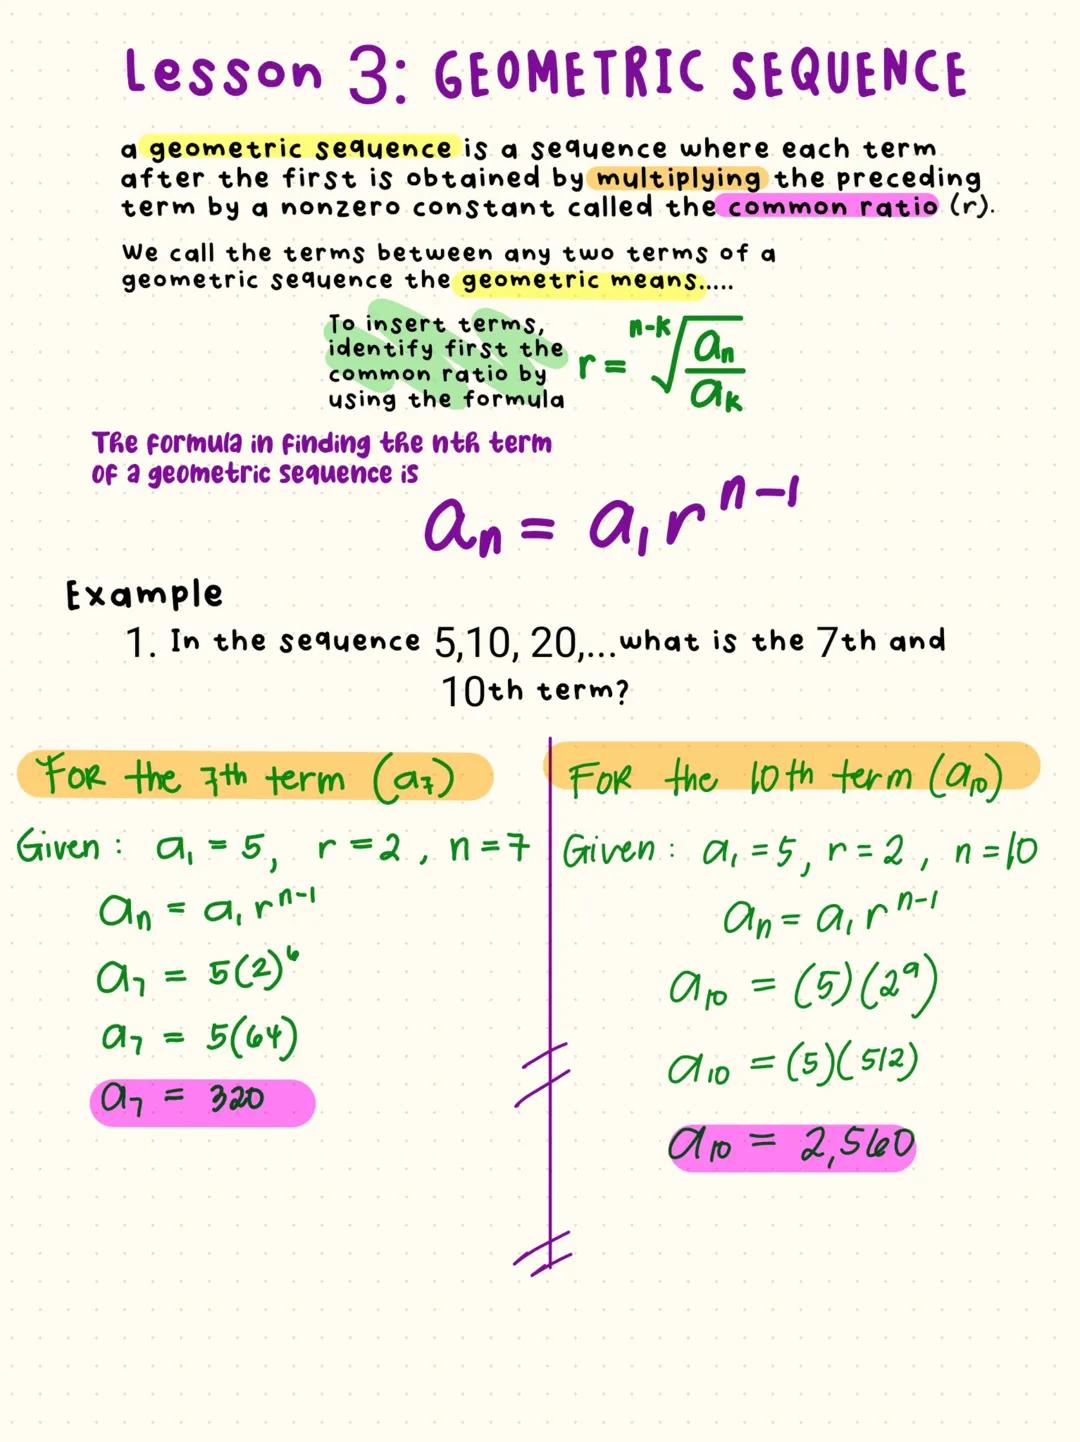 Lesson 3: GEOMETRIC SEQUENCE
a geometric sequence is a sequence where each term
after the first is obtained by multiplying the preceding
term by a nonzero constant called the common ratio (r).
We call the terms between any two terms of a
geometric sequence the geometric means.....
To insert terms,
identify first the
common ratio by
using the formula
r = n-k√(an/ak)
The formula in finding the nth term
of a geometric sequence is
an = a₁rⁿ⁻¹
Example
1. In the sequence 5,10, 20,...what is the 7th and
10th term?
FOR the 7th term (a₇)
Given: a₁ = 5, r = 2, n = 7
an = a₁rⁿ⁻¹
a₇ = 5(2)⁶
a₇ = 5(64)
a₇ = 320
FOR the 10th term (a₁₀)
Given: a₁ = 5, r = 2, n = 10
an = a₁rⁿ⁻¹
a₁₀ = (5)(2⁹)
a₁₀ = (5)(512)
a₁₀ = 2,560